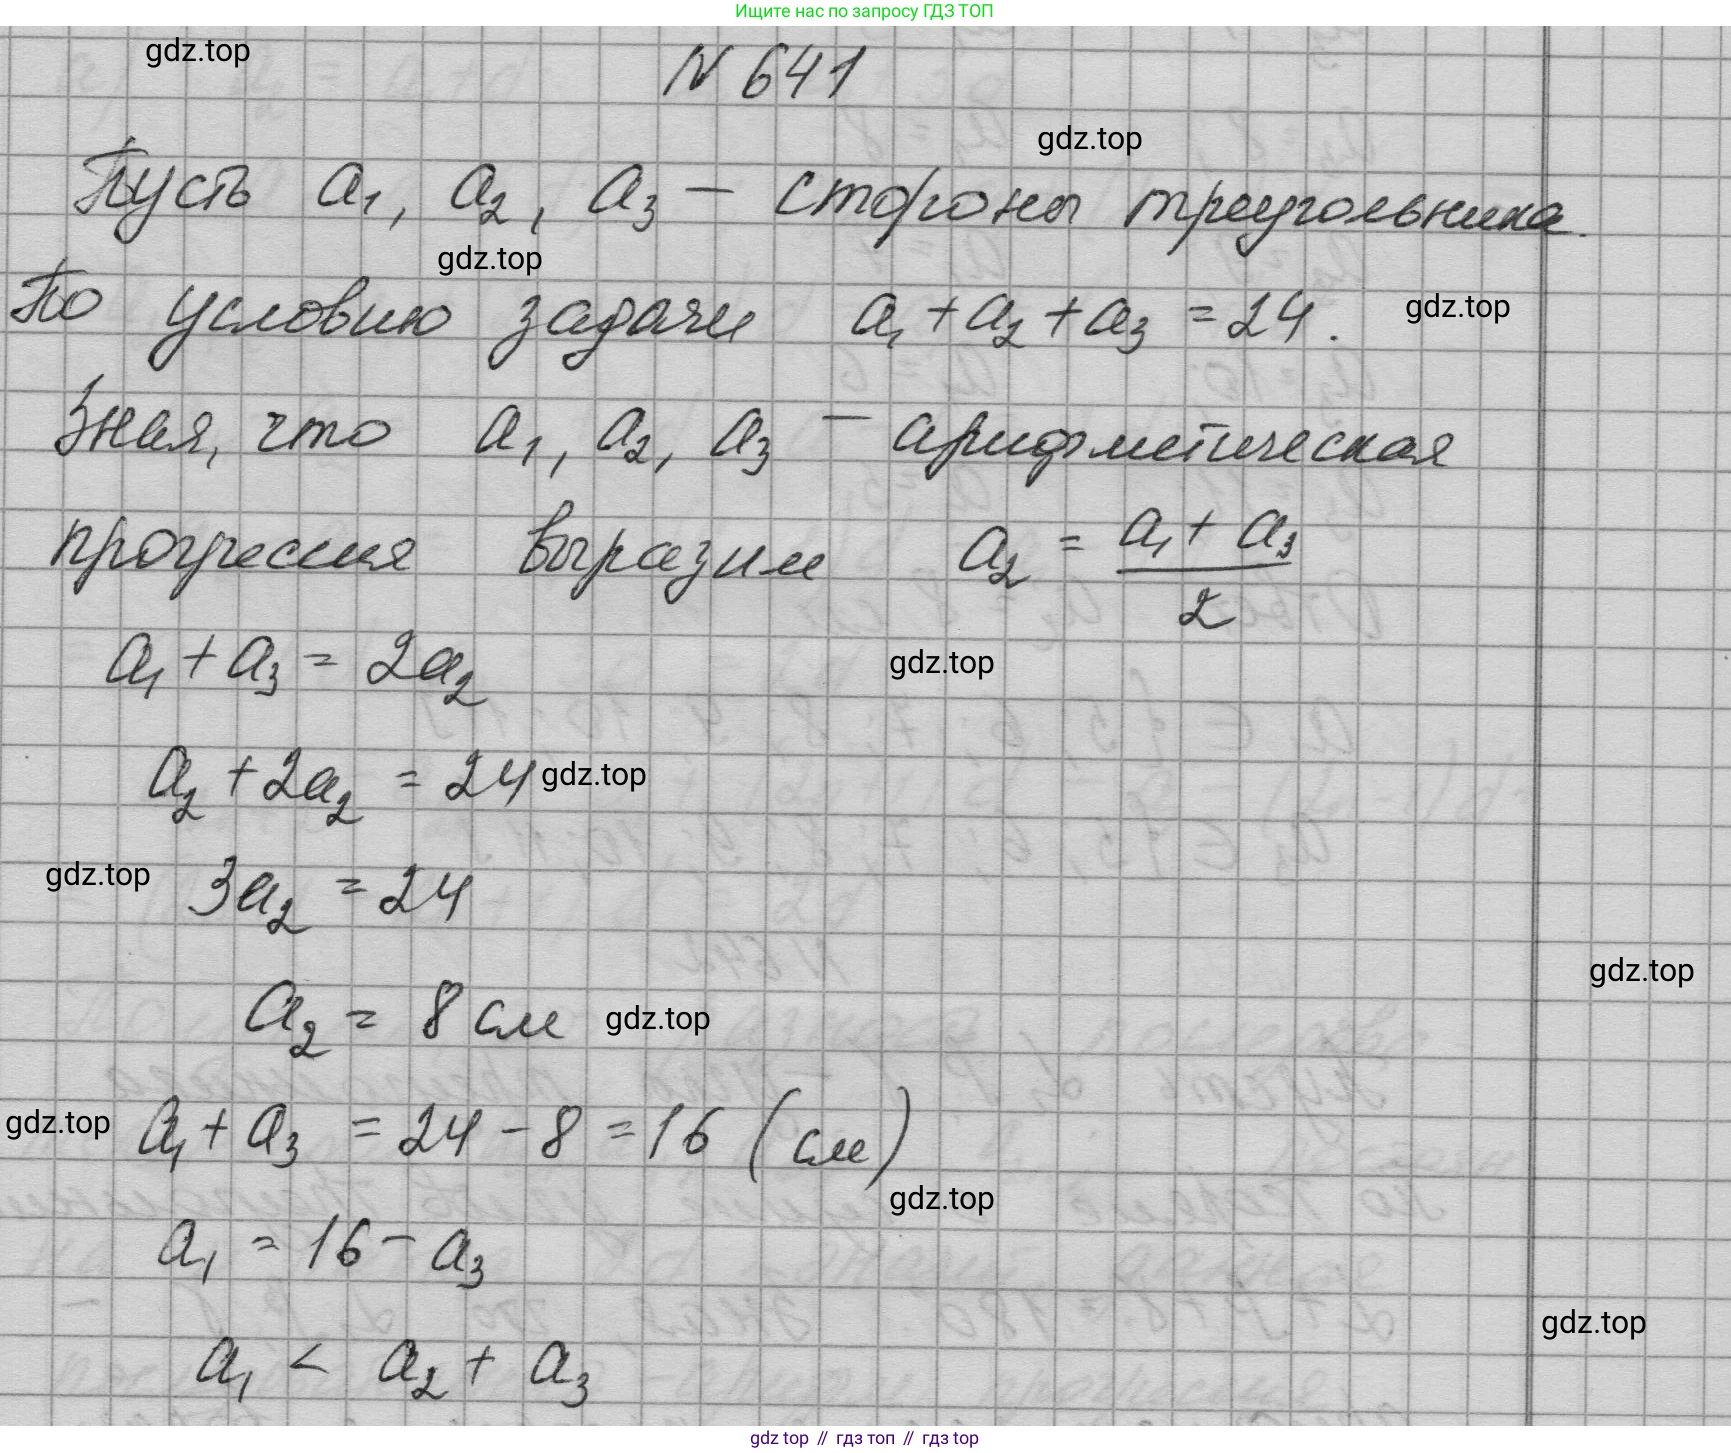 Ищите нас по запросу ГДЗ ТОП
gdz.top
N 641
gdz.top
Пусть a₁, a₂, a₃ — стороны треугольника.
gdz.top
По условию задачи a₁ + a₂ + a₃ = 24.
gdz.top
Зная, что a₁, a₂, a₃ — арифметическая
прогрессия выразим a₂ = (a₁ + a₃)/2
a₁ + a₃ = 2a₂
gdz.top
a₂ + 2a₂ = 24
gdz.top
gdz.top
3a₂ = 24
gdz.top
a₂ = 8 см
gdz.top
gdz.top
a₁ + a₃ = 24 - 8 = 16 (см)
gdz.top
a₁ = 16 - a₃
gdz.top
a₁ < a₂ + a₃
gdz top // гдз топ // гдз top